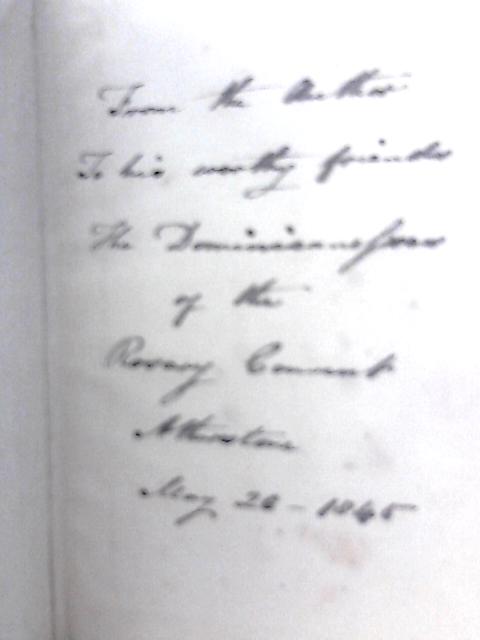 From the Author
To his worthy friends
The Dominicanesses
of the
Rosary Convent
Atherstone
May 26 - 1845